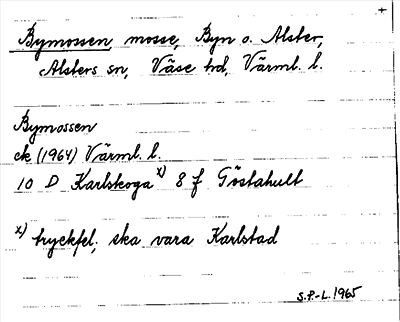 +
Bymossen, mosse, Byn o. Alster,
Alsters sn, Väse hd, Värml. l.
Bymossen
ek (1964) Värml. l.
10 D Karlskoga x) 8 f Göstahult
x) tryckfel, ska vara Karlstad
S.P.-L. 1965